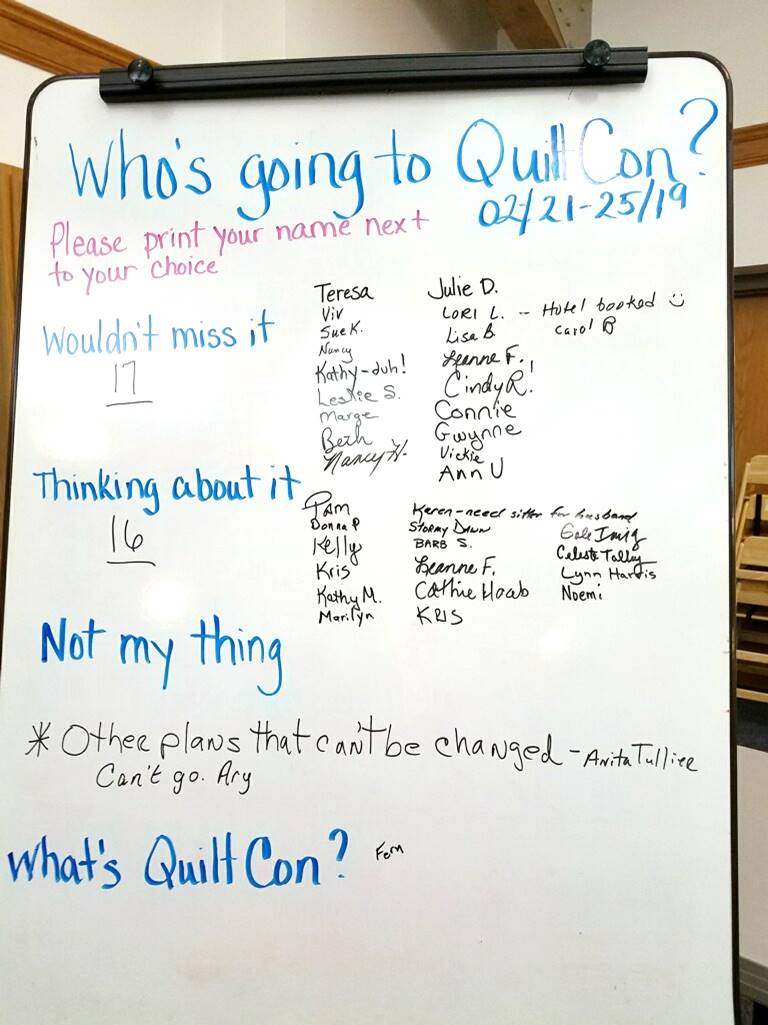 Who's going to QuiltCon?
02/21-25/19
Please print your name next
to your choice
Wouldn't miss it
17
Teresa
Viv
Sue K.
Nancy
Kathy-duh!
Leslie S.
Marge
Beth
Nancy H.
Julie D.
LORI L. -- Hotel booked ☺
Lisa B Carol B
Leanne F.
Cindy R!
Connie
Gwynne
Vickie
Ann U
Thinking about it
16
Pam
Donna P
Kelly
Kris
Kathy M.
Marilyn
Karen-need sitter for husband
STORMY DAWN
BARB S.
Leanne F.
Cathie Haab
KRIS
Gale Imig
Celeste Talley
Lynn Harris
Noemi
Not my thing
* Other plans that can't be changed - Anita Tullier
Can't go. Ary
What's QuiltCon? Fern